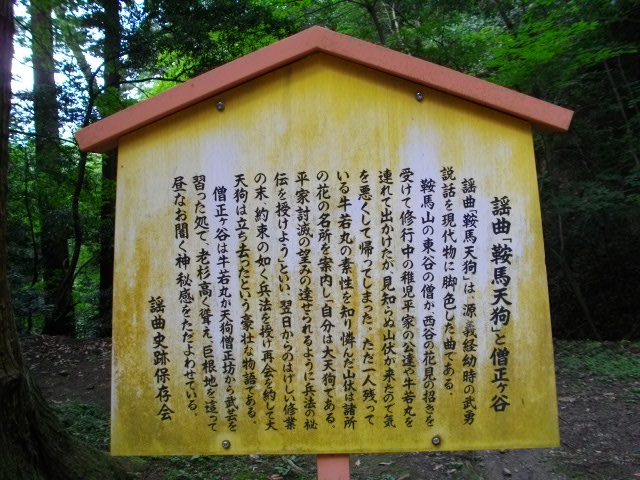 謡曲「鞍馬天狗」と僧正ヶ谷
謡曲「鞍馬天狗」は、源義経幼時の武勇
説話を現代物に脚色した曲である。
鞍馬山の東谷の僧が、西谷の花見の招きを
受けて修行中の稚児平家の公達や牛若丸を
連れて出かけたが、見知らぬ山伏が来たので気
を悪くして帰ってしまった。ただ一人残って
いる牛若丸の素性を知り憐んだ山伏は諸所
の花の名所を案内し、自分は大天狗である。
平家討滅の望みの達せられるように兵法の秘
伝を授けようといい、翌日からのはげしい修業
の末、約束の如く兵法を授け再会を約して大
天狗は立ち去ったという豪壮な物語である。
僧正ヶ谷は牛若丸が天狗僧正坊から武芸を
習った処で、老杉高く聳え、巨根地を這って
昼なお闇く神秘感をただよわせている。
謡曲史跡保存会